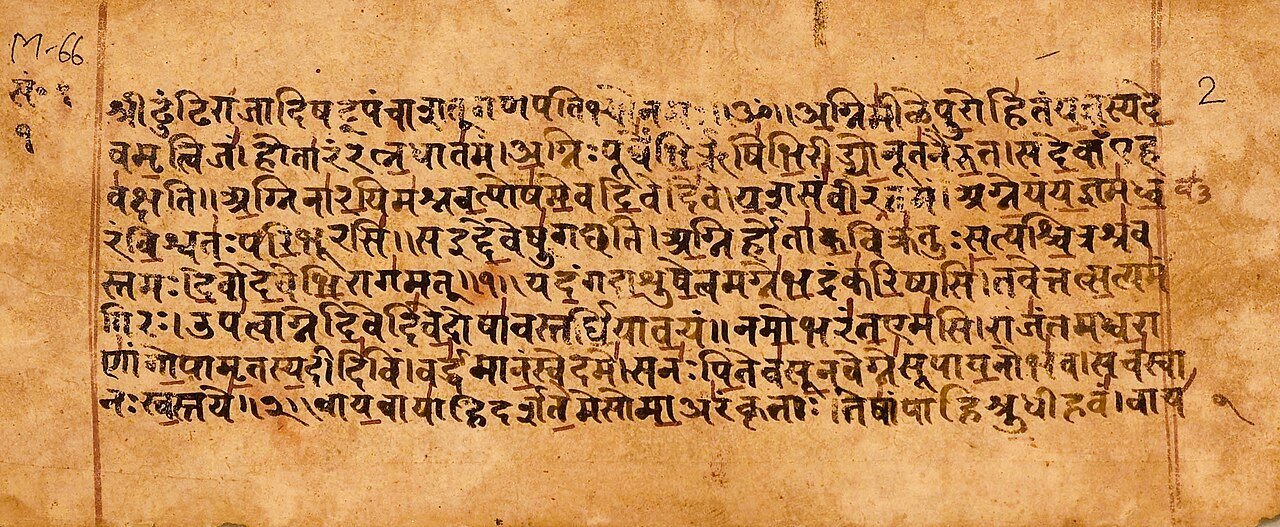 M-66
सं॰ १
१
2
श्रीढुंढिराजादिषट्पंचाशत् गणपतिभ्यो नमः॥ॐ॥अग्निमीळेपुरोहितंयज्ञस्यदे
वमृत्विजं।होतारंरत्नधातमं।अग्निःपूर्वेभिर्ऋषिभिरीड्योनूतनैरुत।सदेवाँएह
वक्षति॥अग्निनारयिमश्नवत्पोषमेवदिवेदिवे।यशसंवीरवत्तमं।अग्नेयंयज्ञमध्व
रंविश्वतःपरिभूरसि॥सइद्देवेषुगछति।अग्निर्होताकविक्रतुःसत्यश्चित्रश्रव
स्तमः।देवोदेवेभिरागमत्॥१॥यदंगदाशुषेत्वमग्नेभद्रंकरिष्यसि।तवेत्तत्सत्यमं
गिरः।उपत्वाग्नेदिवेदिवेदोषावस्तर्धियावयं॥नमोभरंतएमसि।राजंतमध्वरा
णांगोपामृतस्यदीदिविं।वर्द्धमानंस्वेदमे।सनःपितेवसूनवेग्नेसूपायनोभव।सचस्वा
नःस्वस्तये॥२॥वायवायाहिदर्शतेमेसोमाअरंकृताः।तेषांपाहिश्रुधीहवं।वाय